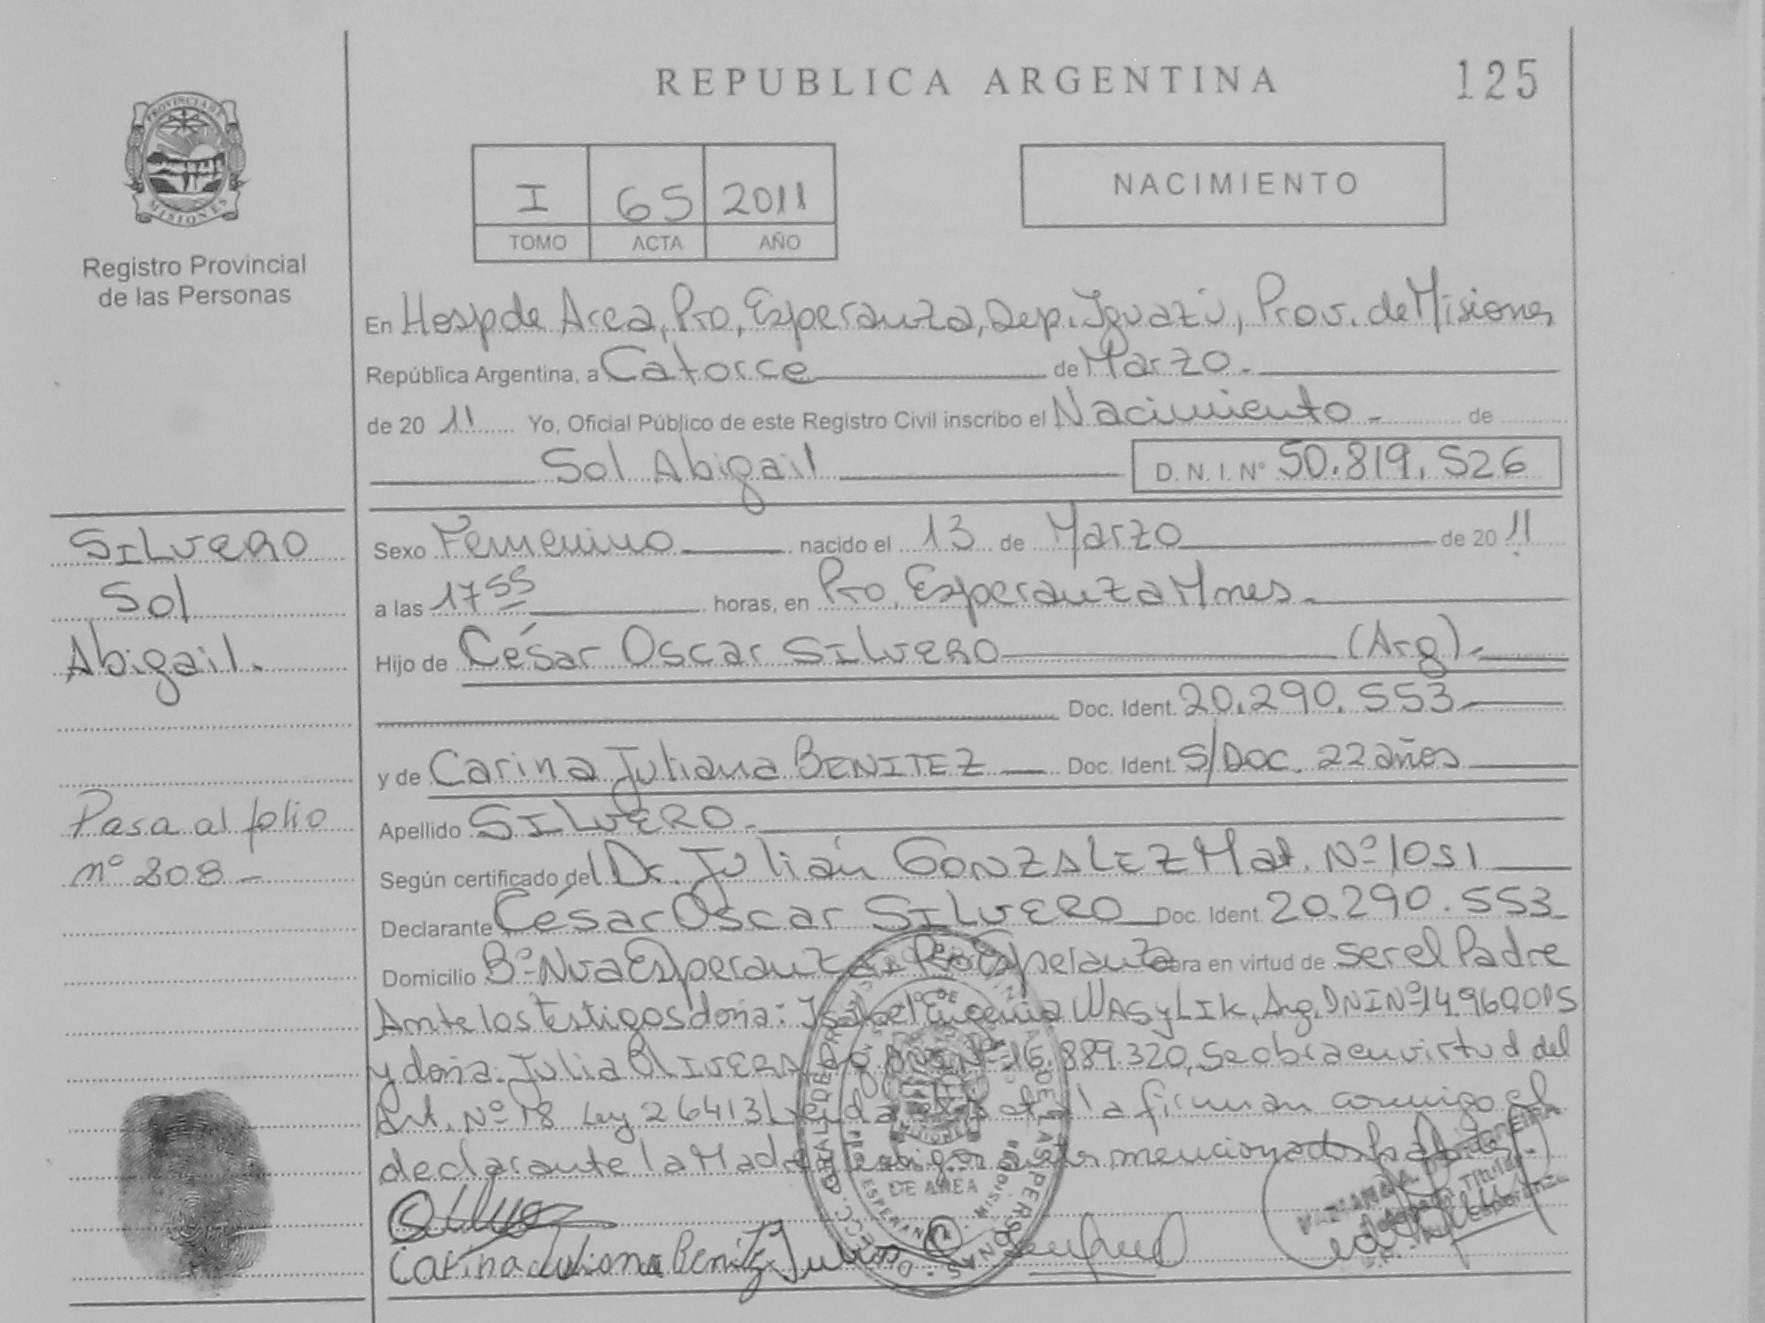 REPUBLICA ARGENTINA
125
PROVINCIA DE MISIONES
Registro Provincial
de las Personas
I 65 2011
TOMO ACTA AÑO
NACIMIENTO
En Hosp de Area, Pto, Esperanza, Dep. Iguazú, Prov. de Misiones
República Argentina, a Catorce de Marzo.
de 2011 Yo, Oficial Público de este Registro Civil inscribo el Nacimiento de
Sol Abigail D. N. I. Nº 50.819.526
SILVERO
Sol
Abigail.
Pasa al folio
nº 208
Sexo Femenino nacido el 13 de Marzo de 2011
a las 17 55 horas, en Pto, Esperanza Mnes.
Hijo de César Oscar SILVERO (Arg).
Doc. Ident. 20.290.553
y de Carina Juliana BENITEZ Doc. Ident. S/Doc. 22 años
Apellido SILVERO.
Según certificado del Dr. Julián GONZALEZ Mat. Nº 1051
Declarante César Oscar SILVERO Doc. Ident. 20.290.553
Domicilio Bº Nva Esperanza Pto Esperanza obra en virtud de ser el Padre
Ante los Testigos doña: Isabel Eugenia WASYLIK, Arg, DNI Nº 14.960.005
y doña: Julia OLIVERA DNI Nº 16.889.320, Se obra en virtud del
Art. Nº 18 Ley 26413 Leida el acta la firman conmigo el
declarante la Madre y testigos antes mencionados
Carina Juliana Benitez
DE AREA